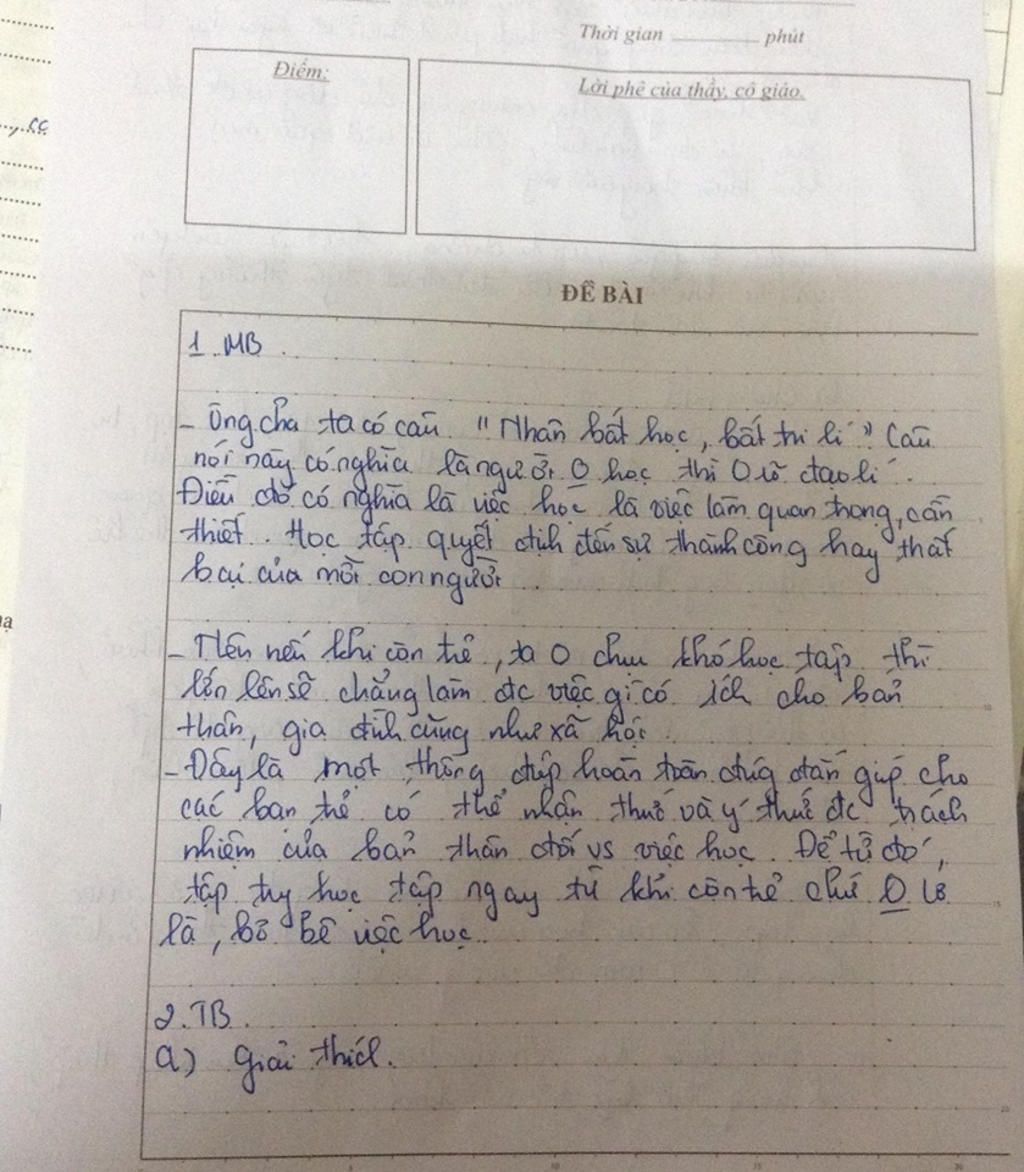 Thời gian phút
Điểm:
Lời phê của thầy, cô giáo.
ĐỀ BÀI
1. MB.
- Ông cha ta có câu. "Nhân bất học, bất tri lí". Câu
nói này có nghĩa là người 0 học thì 0 rõ đạo lí.
Điều đó có nghĩa là việc học là việc làm quan trọng, cần
thiết. Học tập quyết định đến sự thành công hay thất
bại của mỗi con người.
- Nên nếu khi còn trẻ, ta 0 chịu khó học tập thì
lớn lên sẽ chẳng làm đc việc gì có ích cho bản
thân, gia đình cũng như xã hội.
- Đây là một thông điệp hoàn toàn đúg đắn giúp cho
các bạn trẻ có thể nhận thức và ý thức đc trách
nhiệm của bản thân đối vs việc học. Để từ đó,
tập học tập ngay từ khi còn trẻ chứ 0 lơ
là, bỏ bê việc học.
2. TB.
a) Giải thích.